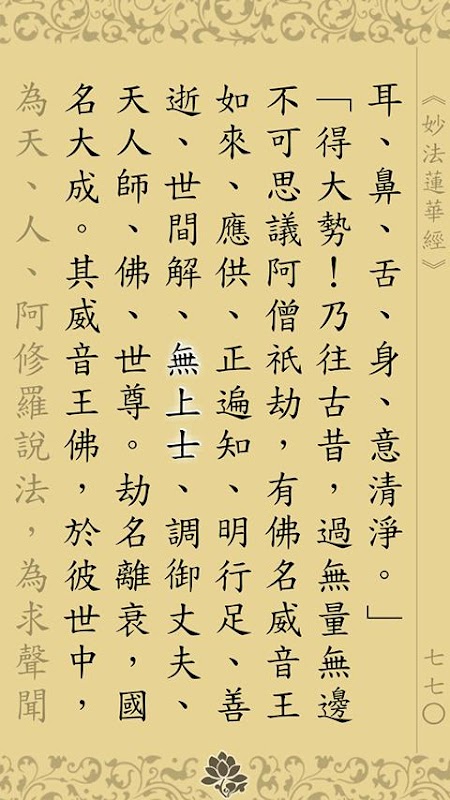 《妙法蓮華經》
七七〇
耳、鼻、舌、身、意清淨。」
「得大勢！乃往古昔，過無量無邊
不可思議阿僧祇劫，有佛名威音王
如來、應供、正遍知、明行足、善
逝、世間解、無上士、調御丈夫、
天人師、佛、世尊。劫名離衰，國
名大成。其威音王佛，於彼世中，
為天、人、阿修羅說法，為求聲聞